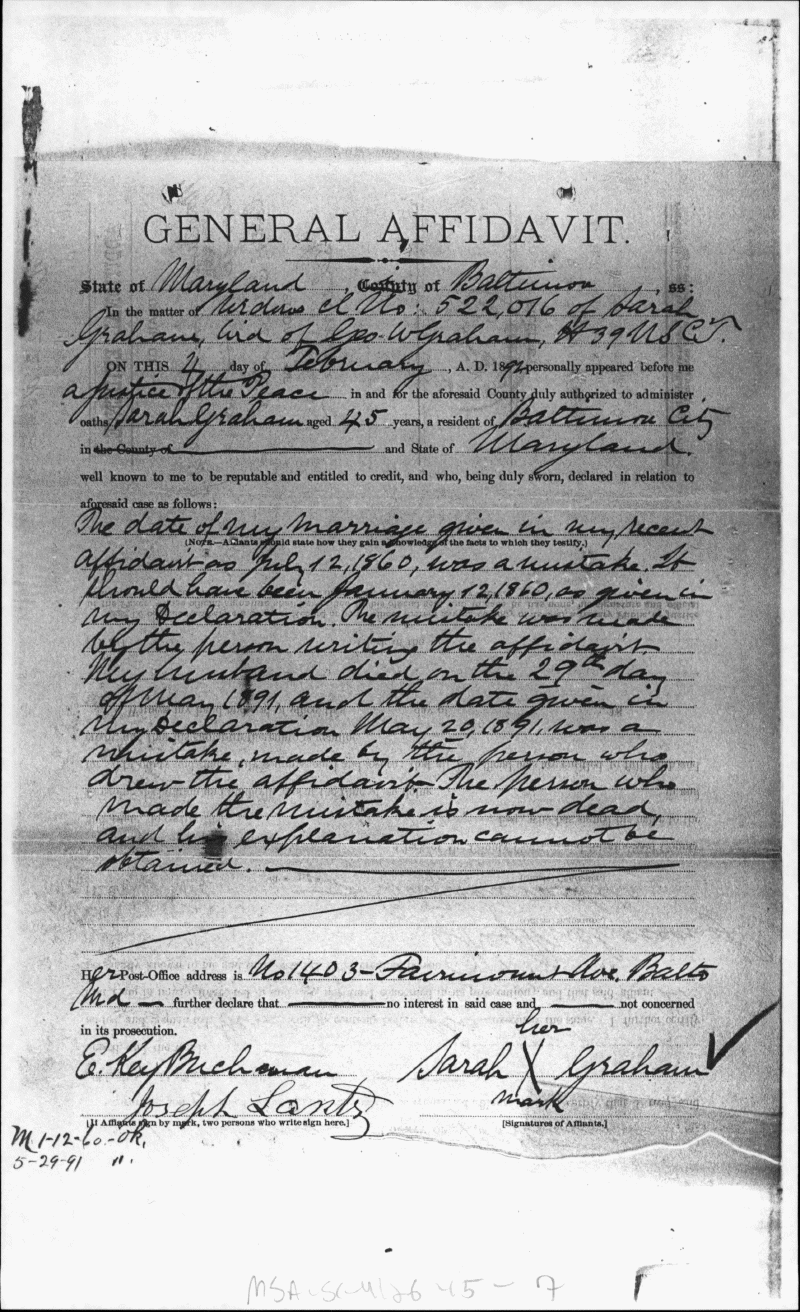 GENERAL AFFIDAVIT.
State of Maryland, County of Baltimore, ss:
In the matter of Widows cl No: 522,016 of Sarah
Graham, wid of Geo. W Graham, H 39 U S C T.
ON THIS 4 day of February, A. D. 1892 personally appeared before me
a Justice of the Peace in and for the aforesaid County duly authorized to administer
oaths Sarah Graham aged 45 years, a resident of Baltimore City
in the County of and State of Maryland.
well known to me to be reputable and entitled to credit, and who, being duly sworn, declared in relation to
aforesaid case as follows:
The date of my marriage given in my recent
(NOTE.—Affiants should state how they gain a knowledge of the facts to which they testify.)
affidavit as July 12, 1860, was a mistake. It
should have been January 12, 1860, as given in
my Declaration. The mistake was made
by the person writing the affidavit
My husband died on the 29th day
of May 1891, and the date given in
my Declaration May 20, 1891, was a
mistake, made by the person who
drew the affidavit. The person who
made the mistake is now dead,
and his explanation cannot be
obtained.
Her Post-Office address is No 1403 - Fairmount Ave. Balto
Md - further declare that no interest in said case and not concerned
in its prosecution.
her
E. Key Buchanan Sarah X Graham
Joseph Lantz mark
[If Affiants sign by mark, two persons who write sign here.] [Signatures of Affiants.]
M 1-12-60-OK.
5-29-91 ".
MSA-SC-4126-45-7